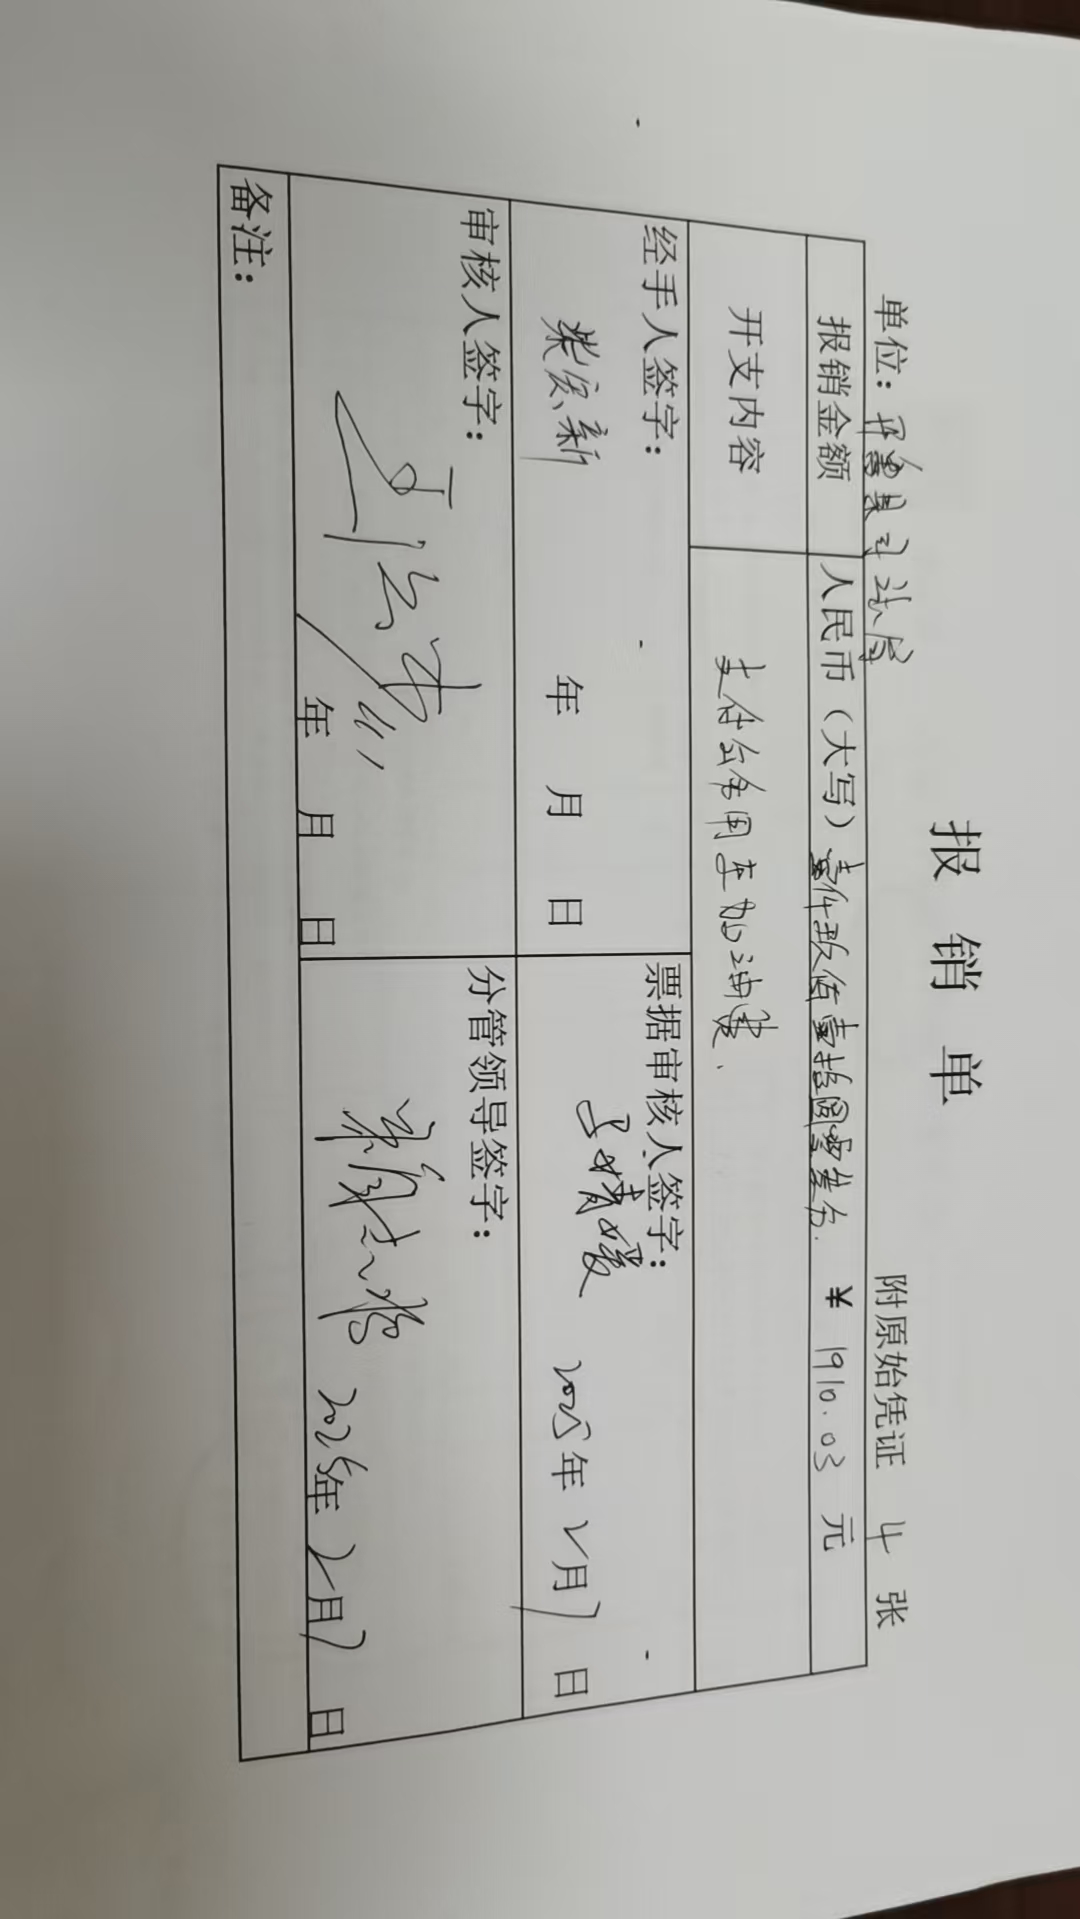 报销单
单位：司法局 附原始凭证 4 张
报销金额 人民币（大写）壹仟玖佰壹拾圆零叁分. ¥ 1910.03 元
开支内容 支付公务用车加油费.
经手人签字： 票据审核人签字：
年 月 日 2025年2月7日
审核人签字： 分管领导签字：
年 月 日 2025年2月7日
备注：